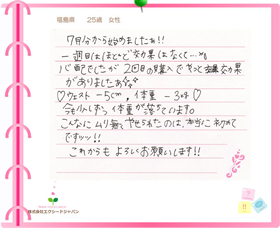 福島県　25歳　女性
7月分から始めましたぁ!!
一週目はほとんど効果はなくて…
心配でしたが2回目の購入でやっと効果
がありましたぁ
♡ウエスト -5cm，体重 -3kg♡
今も少しずつ体重が落ちています。
こんなにムリ無くやせられたのは、本当にネクめて
ですッッ!!
これからもよろしくお願いします!!
株式会社エクシードジャパン